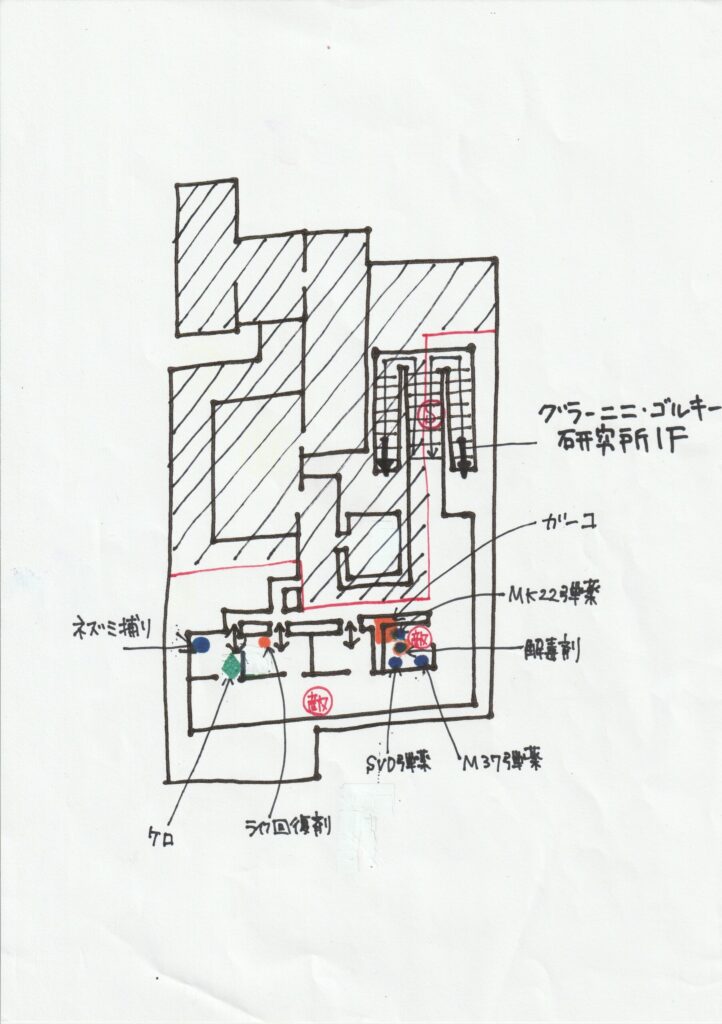 グラーニニ・ゴルキー
研究所1F
ガーコ
MK22弾薬
ネズミ捕り
解毒剤
敵
敵
S
SVD弾薬
M37弾薬
ケロ
ライフ回復剤